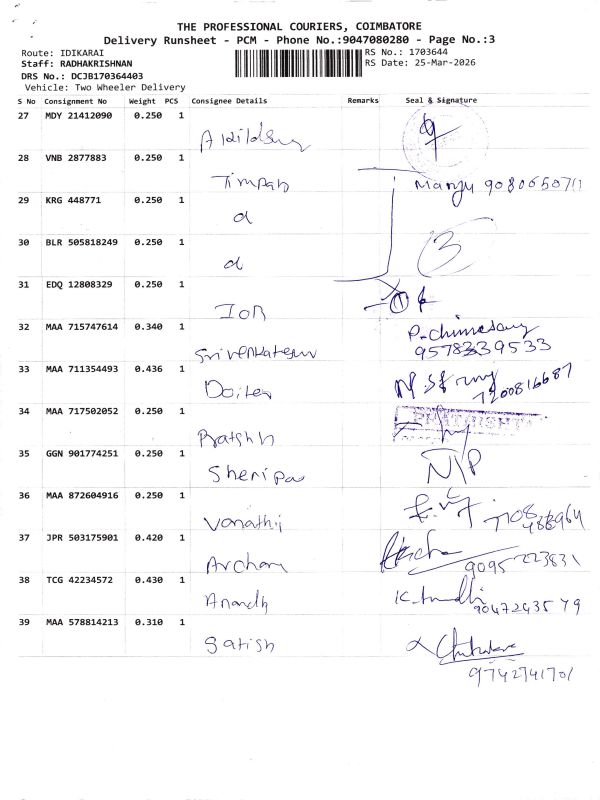 THE PROFESSIONAL COURIERS, COIMBATORE
Delivery Runsheet - PCM - Phone No.:9047080280 - Page No.:3
Route: IDIKARAI
RS No.: 1703644
Staff: RADHAKRISHNAN
RS Date: 25-Mar-2026
DRS No.: DCJB170364403
Vehicle: Two Wheeler Delivery
S No Consignment No Weight PCS Consignee Details Remarks Seal & Signature
27 MDY 21412090 0.250 1
28 VNB 2877883 0.250 1
Timpab Manju 9080650711
29 KRG 448771 0.250 1
d
30 BLR 505818249 0.250 1
d 3
31 EDQ 12808329 0.250 1
IOB
32 MAA 715747614 0.340 1
9578339533
33 MAA 711354493 0.436 1
7200816687
34 MAA 717502052 0.250 1
35 GGN 901774251 0.250 1
N/P
36 MAA 872604916 0.250 1
Vanathi
37 JPR 503175901 0.420 1
Archana 9095223831
38 TCG 42234572 0.430 1
Anandh
39 MAA 578814213 0.310 1
Satish
9742741701